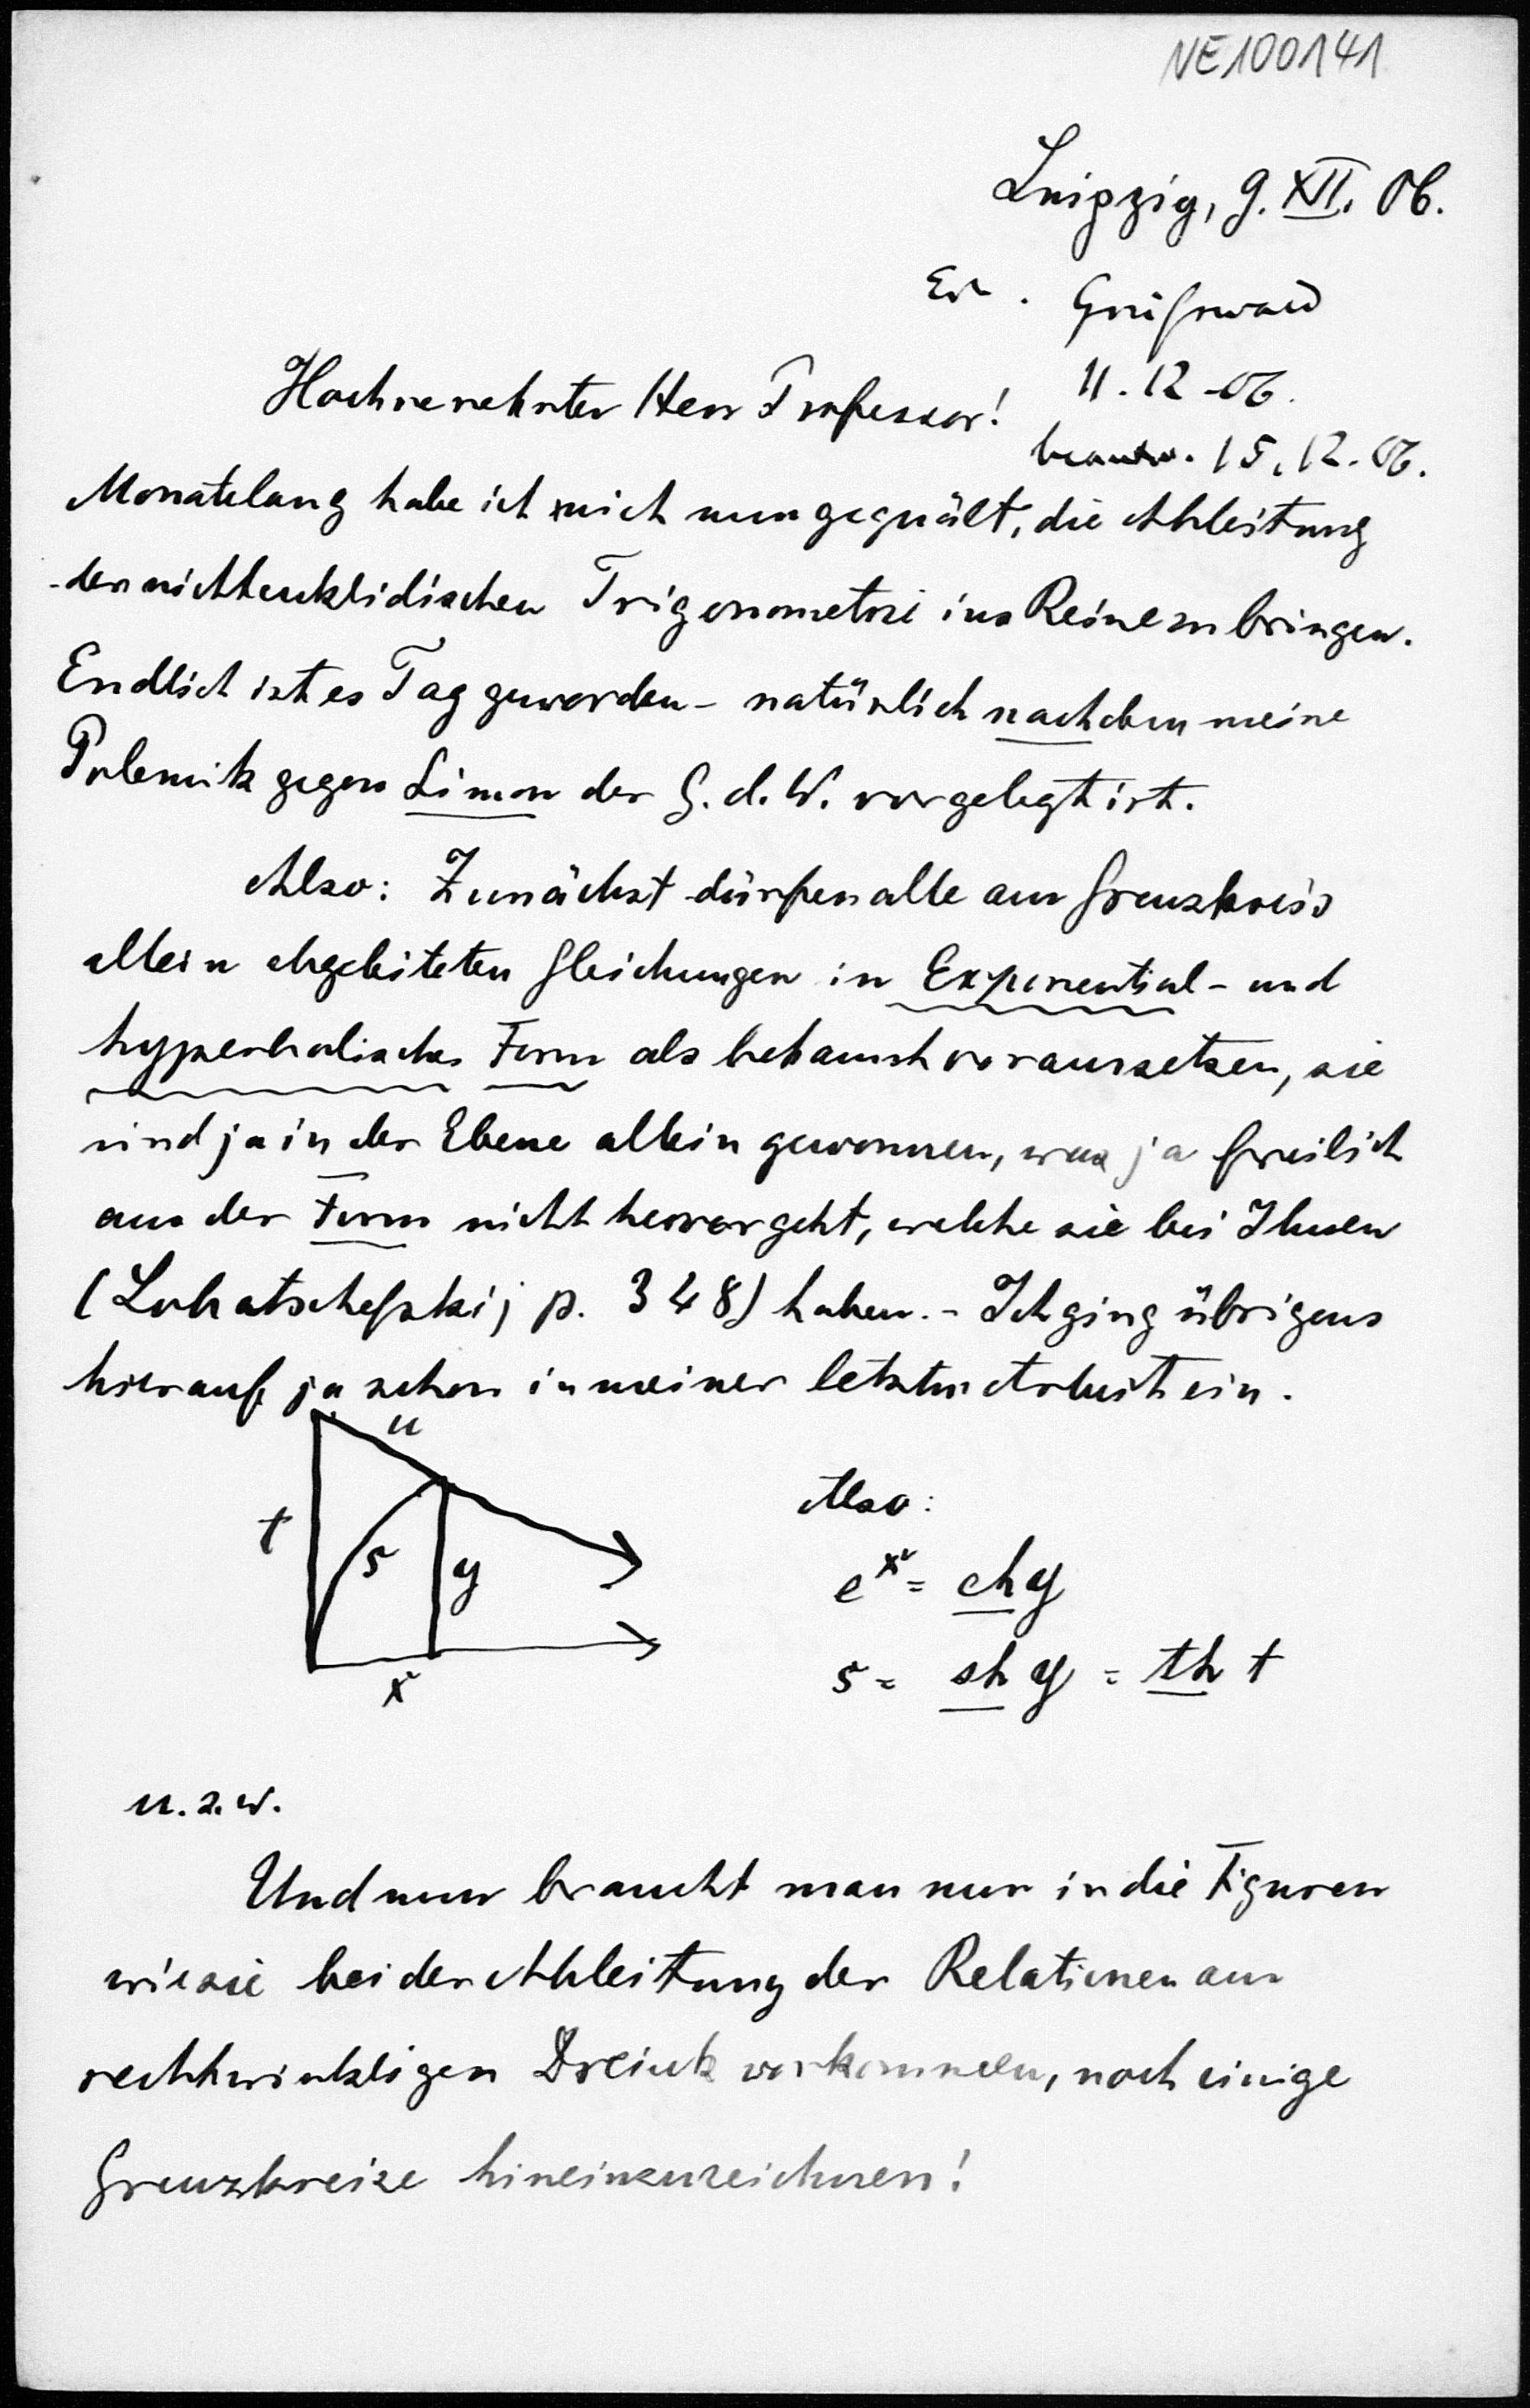 NE100141
Leipzig, 9. XII. 06.
Er. Greifswald
11. 12. 06.
Hochverehrter Herr Professor!
beantw. 15. 12. 06.
Monatelang habe ich mich nun gequält, die Ableitung
der nichteuklidischen Trigonometrie ins Reine zu bringen.
Endlich ist es Tag geworden – natürlich nachdem meine
Polemik gegen Simon der G. d. W. vorgelegt ist.
Also: Zunächst dürfen alle am Grenzkreis
allein abgeleiteten Gleichungen in Exponential- und
hyperbolischer Form als bekannt voraussetzen, sie
sind ja in der Ebene allein gewonnen, was ja freilich
aus der Form nicht hervorgeht, welche sie bei Ihnen
(Lobatschefskij p. 348) haben. – Ich ging übrigens
hierauf ja schon in meiner letzten Arbeit ein.
u
t s y
x
Also:
e^x = ch y
s = sh y = th t
u. s. w.
Und nun braucht man nur in die Figuren
wie sie bei der Ableitung der Relationen am
rechtwinkligen Dreieck vorkommen, noch einige
Grenzkreise hineinzuzeichnen!